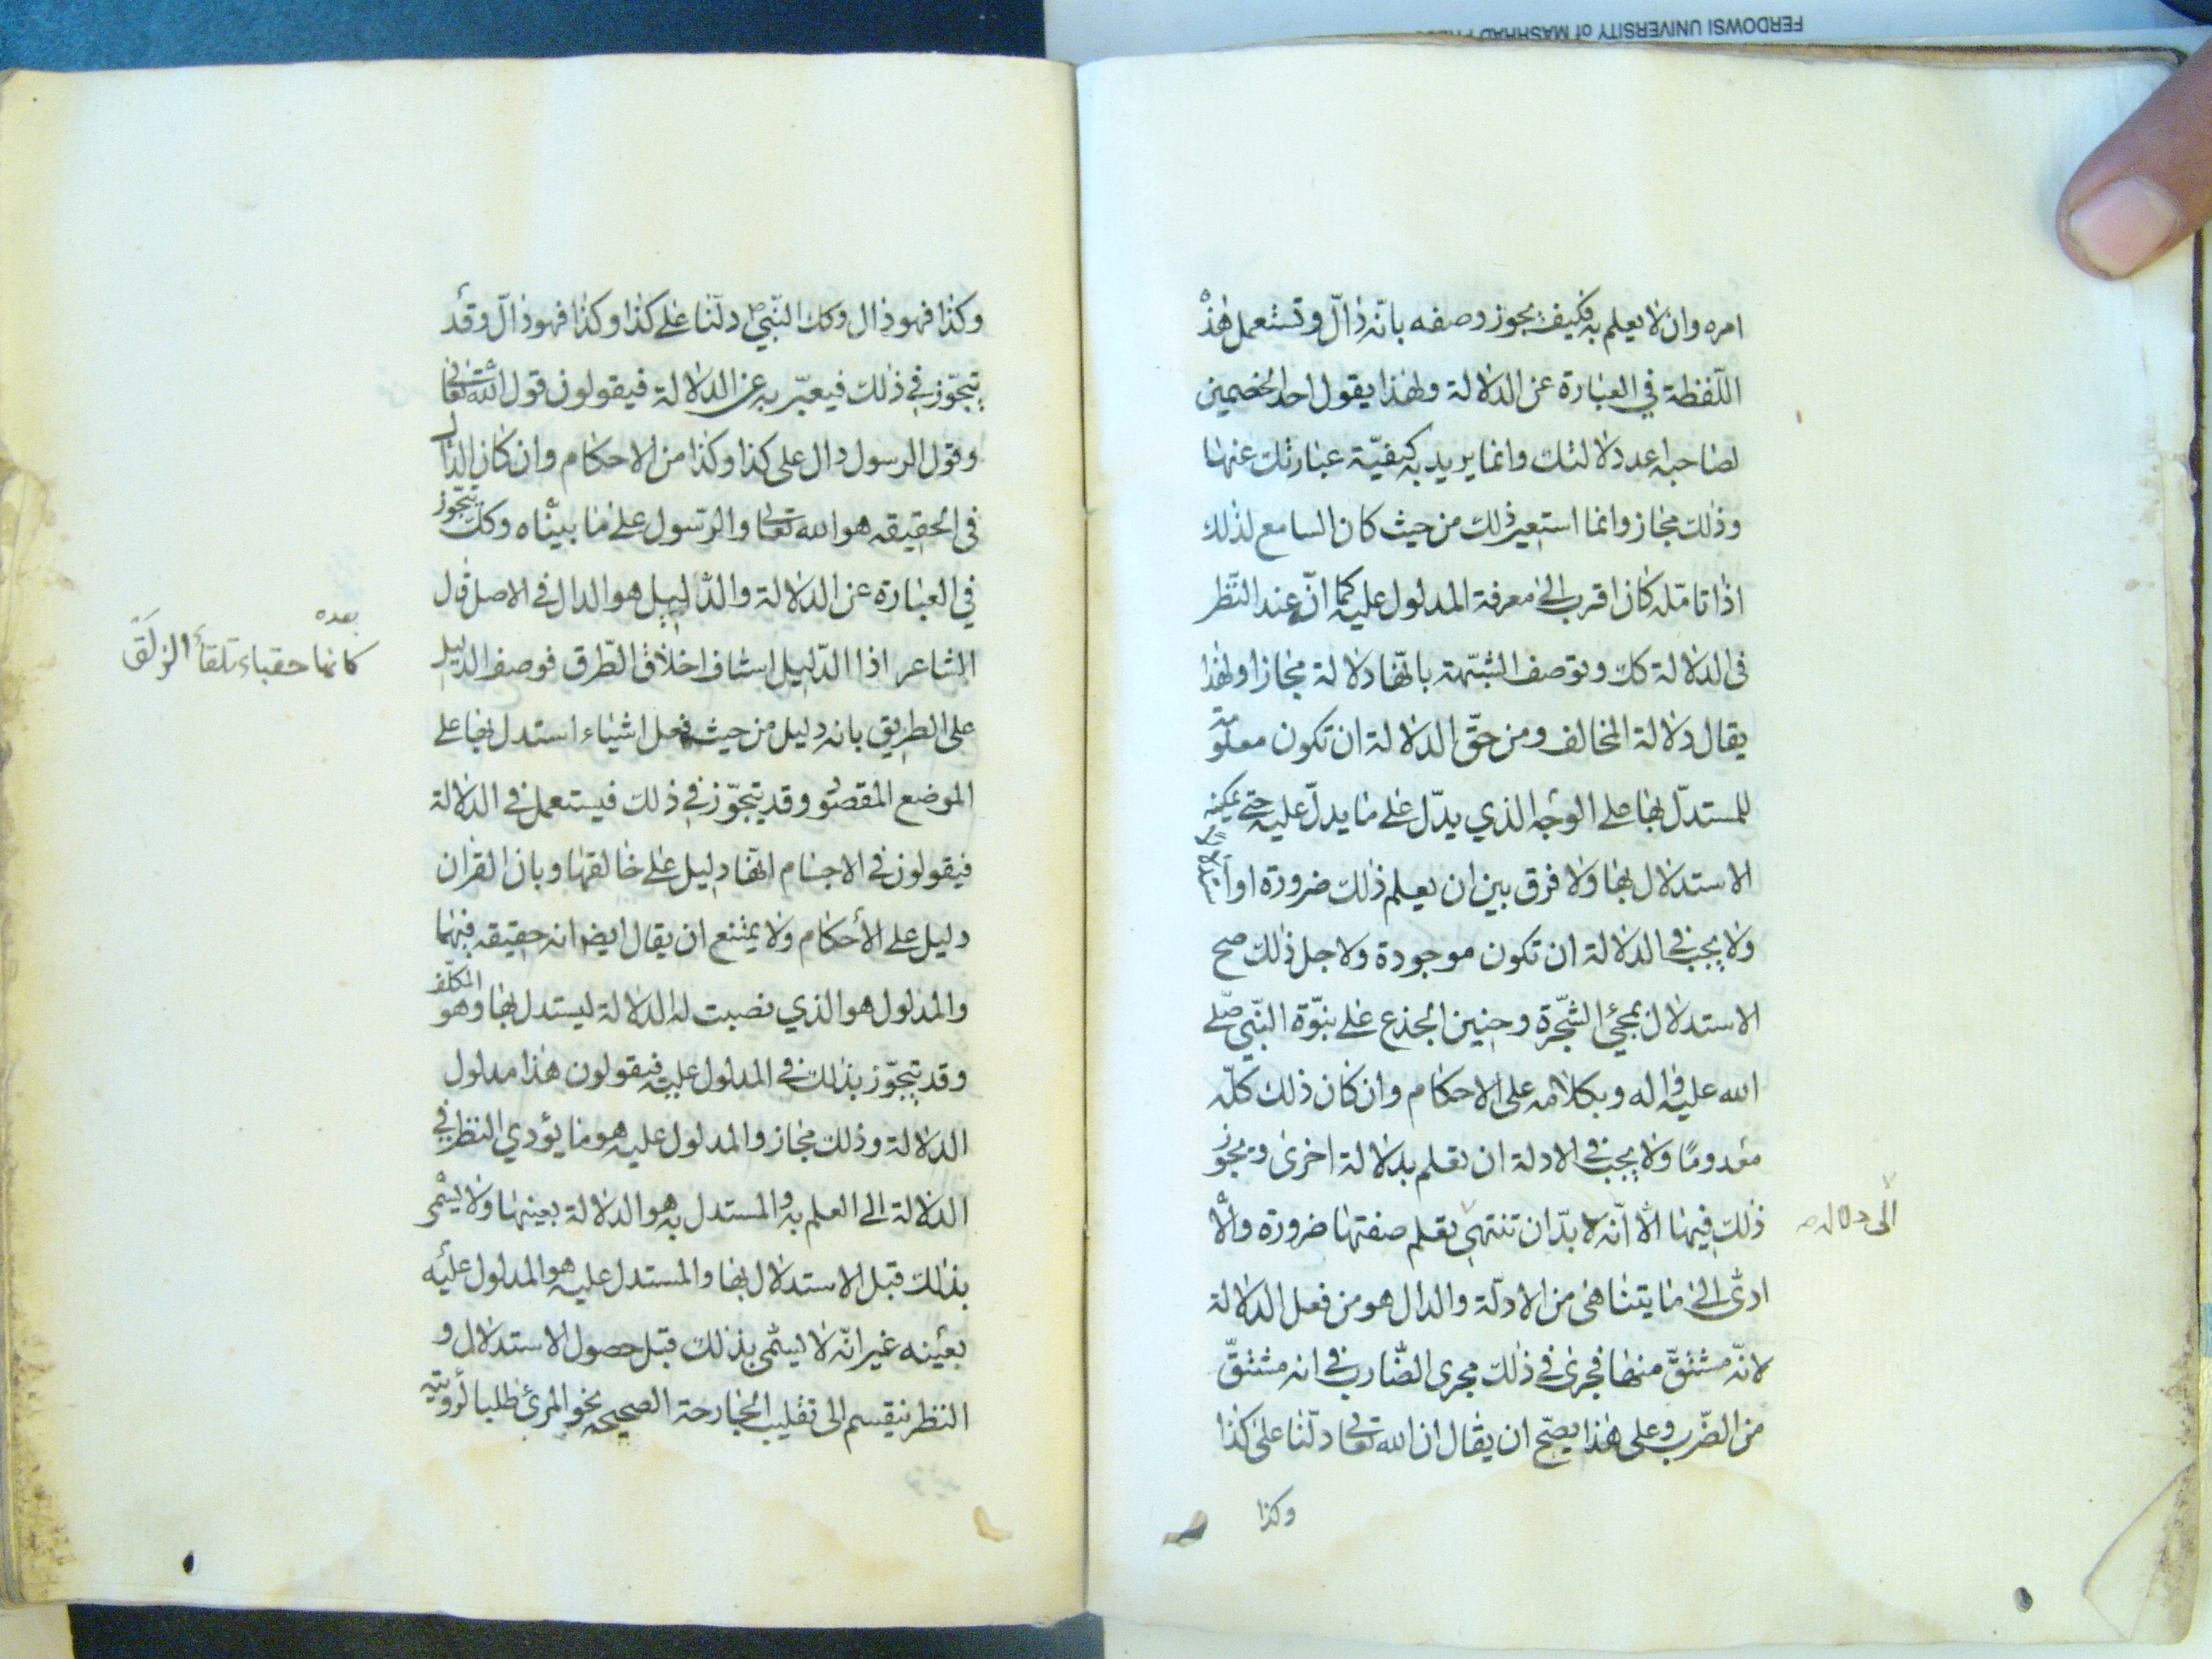 FERDOWSI UNIVERSITY of MASHHAD
امره وان لا يعلم به فكيف يجوز وصفه بانّه دالّ وتستعمل هذه
اللّفظة في العبارة عن الدلالة ولهذا يقول احد الخصمين
لصاحبه اعد دلالتك وانما يريد به كيفيّة عبارتك عنها
وذلك مجاز وانما استعير ذلك من حيث كان السامع لذلك
اذا تامّله كان اقرب الى معرفة المدلول عليه كما انّ عند النّظر
فى الدلالة كك وتوصف الشبّهة بانّها دلالة مجازا ولهذا
يقال دلالة المخالف ومن حقّ الدلالة ان تكون معلومة
للمستدلّ بها على الوجه الذي يدلّ على ما يدلّ عليه حتى يمكنه
الاستدلال بها ولا فرق بين ان يعلم ذلك ضرورة او
ولا يجب في الدلالة ان تكون موجودة ولاجل ذلك صح
الاستدلال بمجئ الشّجرة وحنين الجذع على نبوّة النّبي صلّى
الله عليه واله وبكلامه على الاحكام وان كان ذلك كلّه
معدومًا ولا يجب في الادلة ان تعلم بدلالة اخرى ويجوز
ذلك فيها الّا انّه لا بدّ ان تنتهي تعلم صفتها ضرورة والّا
الى دلالة صـ
ادّى الى ما يتناهى من الادلّة والدال هو من فعل الدلالة
لانّه مشتقّ منها فجرى في ذلك مجرى الضّارب في انه مشتقّ
من الضّرب وعلى هذا يصحّ ان يقال ان الله تعالى دلّنا على كذا
وكذا
وكذا فهو دال وكك النّبيّ ص دلّنا على كذا وكذا فهو دالّ وقد
يتجوّز في ذلك فيعبّر به عن الدلالة فيقولون قول الله تعالى
وقول الرسول دال على كذا وكذا من الاحكام وان كان الدال
فى الحقيقه هو الله تعالى والرّسول على ما بيناه وكك يتجّوز
في العبارة عن الدلالة والدّليل هو الدال في الاصل قال
الشاعر اذا الدّليل استاف اخلاق الطّرق فوصف الدليل
بعده
كانها حقباء بلقاء الزلَق
على الطريق بانه دليل من حيث فعل اشياء استدل بها على
الموضع المقصود وقد يتجوّز في ذلك فيستعمل في الدلالة
فيقولون في الاجسام انّها دليل على خالقها وبان القران
دليل على الأحكام ولا يمتنع ان يقال ايضا انه حقيقه فيهما
والمدلول هو الذي نصبت له الدلالة ليستدل بها وهو المكلّف
وقد يتجوّز بذلك في المدلول عليه فيقولون هذا مدلول
الدلالة وذلك مجاز والمدلول عليه هو ما يؤدي النظر في
الدلالة الى العلم به والمستدل به هو الدلالة بعينها ولا يسّمى
بذلك قبل الاستدلال بها والمستدل عليه هو المدلول عليه
بعينه غير انّه لا يسّمى بذلك قبل حصول الاستدلال و
النظر ينقسم الى تقليب الجارحة الصحيحه نحو المرئ طلبا لرؤيته